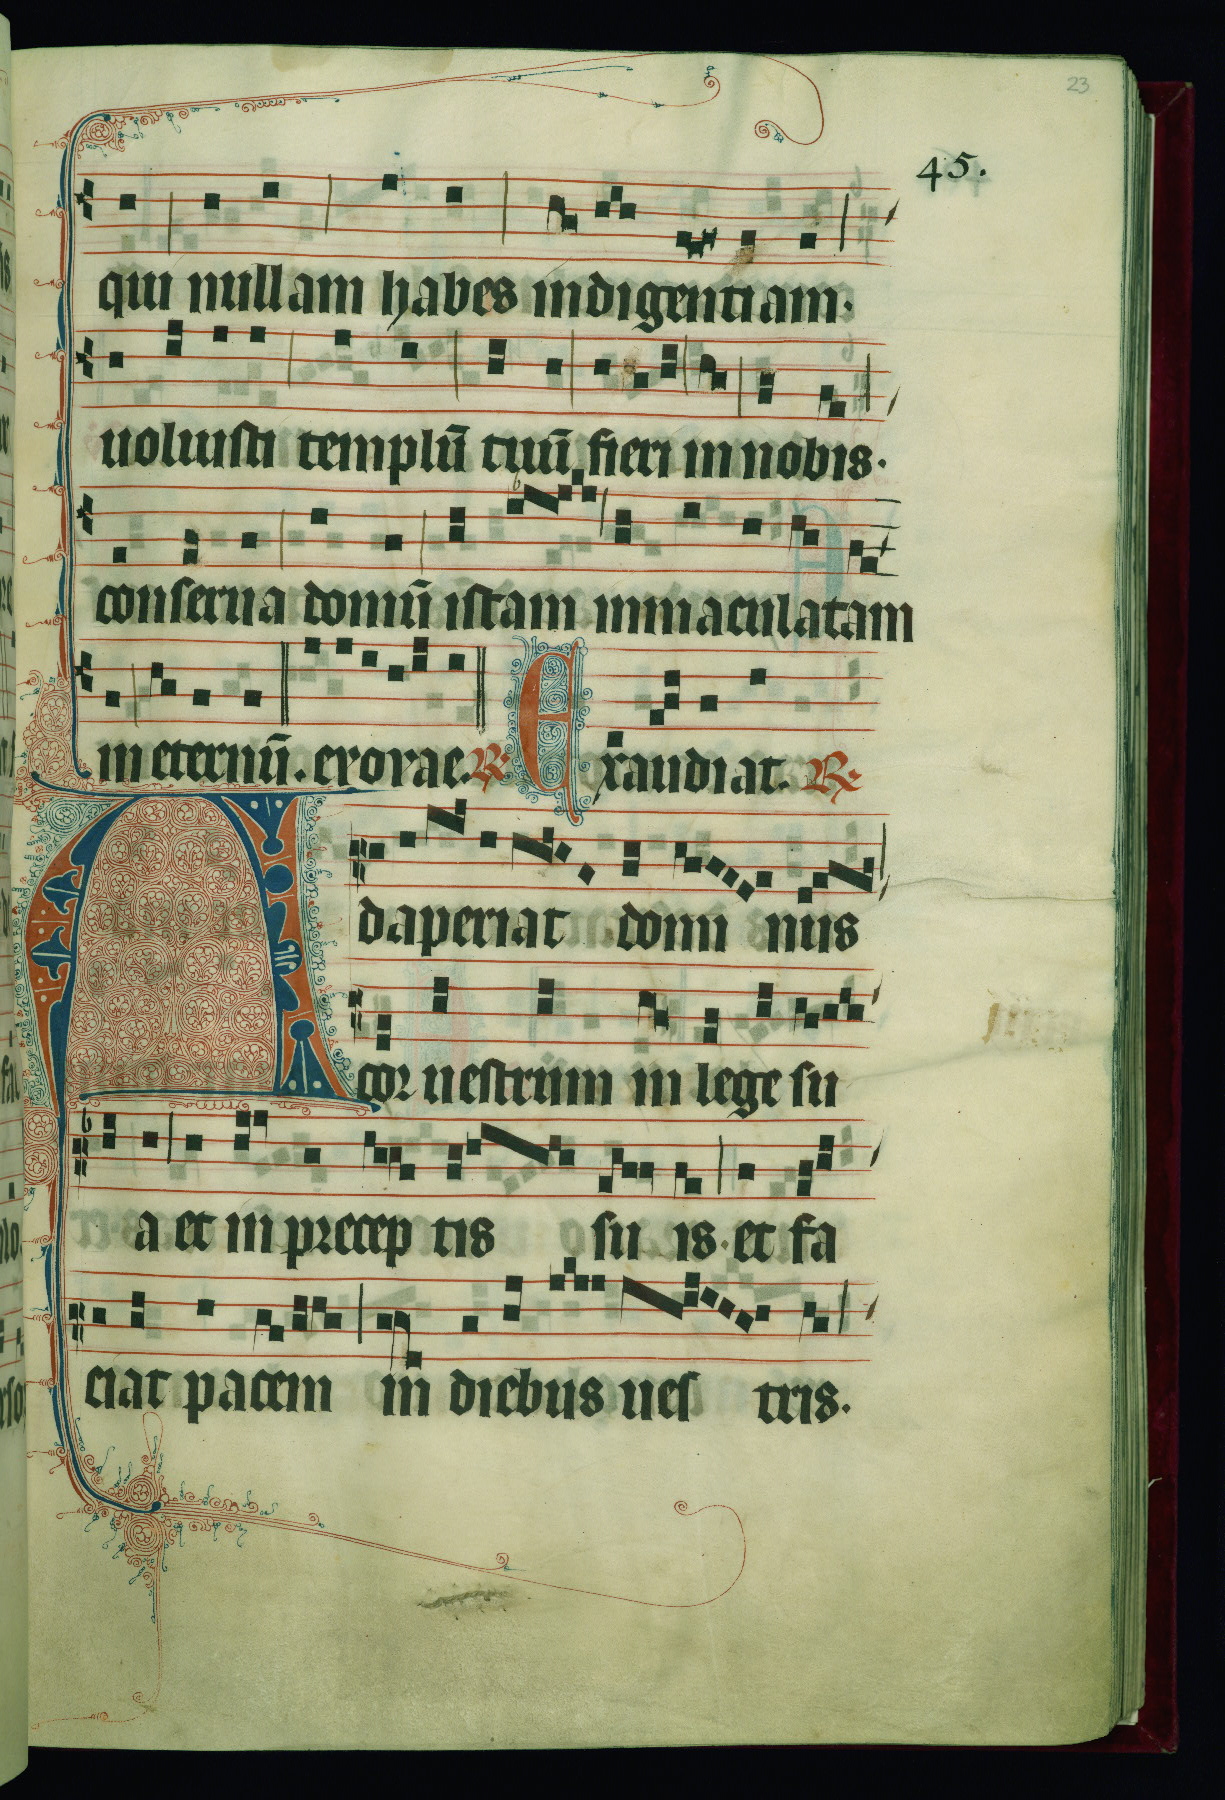 23
45.
qui nullam habes indigentiam.
uoluisti templū tuū fieri in nobis.
conserua domū istam immaculatam
in eternū. exorae. R. Exaudiat. R.
Adaperiat domi nus
cor uestrum in lege su
a et in precep tis su is. et fa
ciat pacem in diebus ues tris.